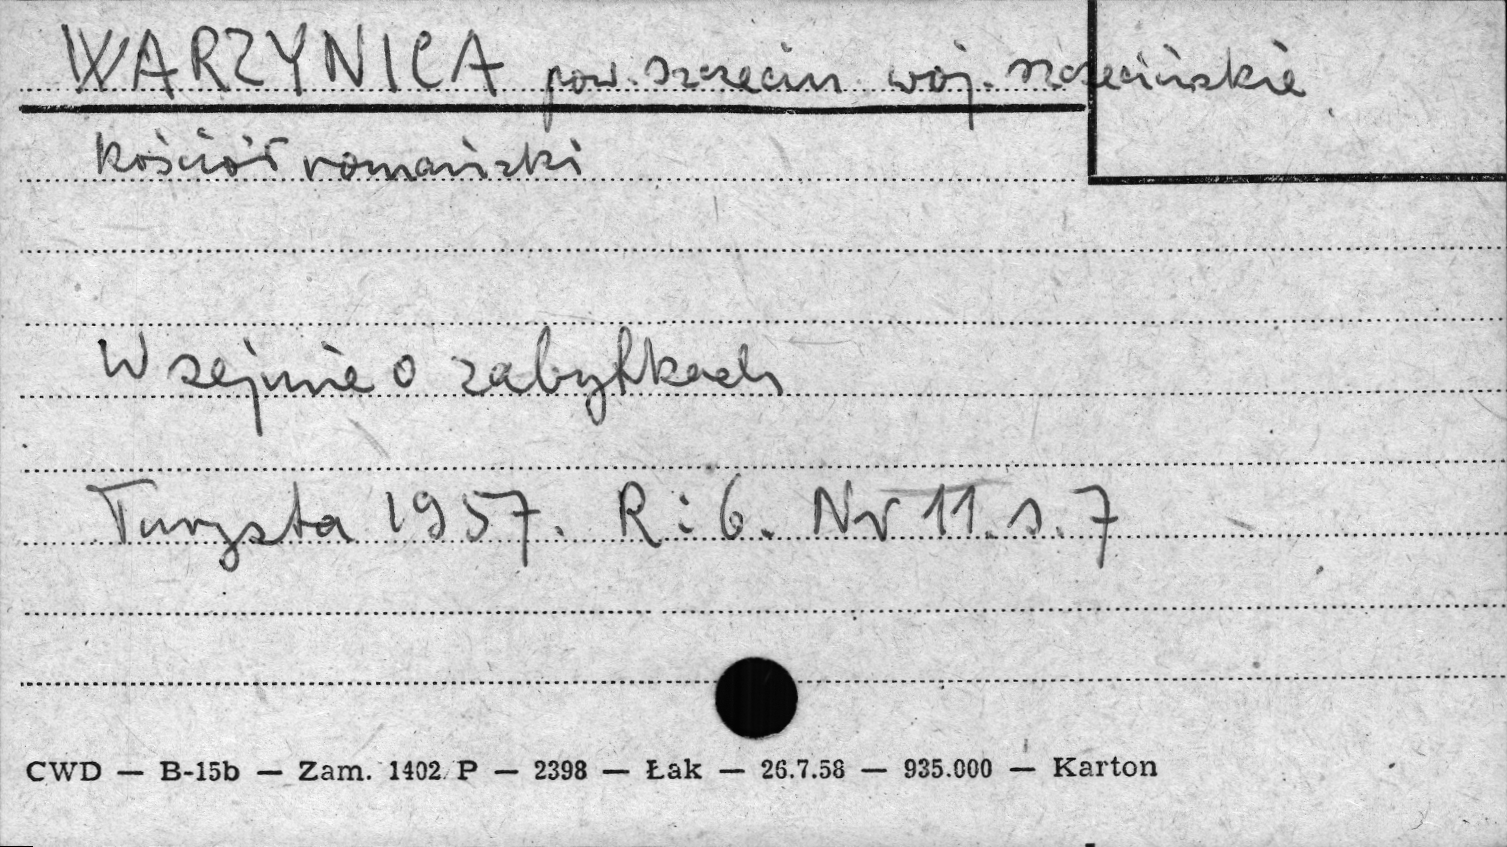 WARZYNICA pow. Szczecin woj. szczecińskie
kościół romański
W sejmie o zabytkach
Turysta 1957. R: 6. Nr 11. s. 7
CWD — B-15b — Zam. 1402 P — 2398 — Łak — 26.7.58 — 935.000 — Karton